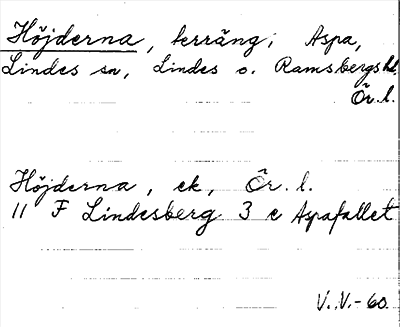 Höjderna, terräng; Aspa,
Lindes sn, Lindes o. Ramsbergs hd.
Ör. l.
Höjderna, ek, Ör. l.
11 F Lindesberg 3 c Aspafallet
V.V.-60.